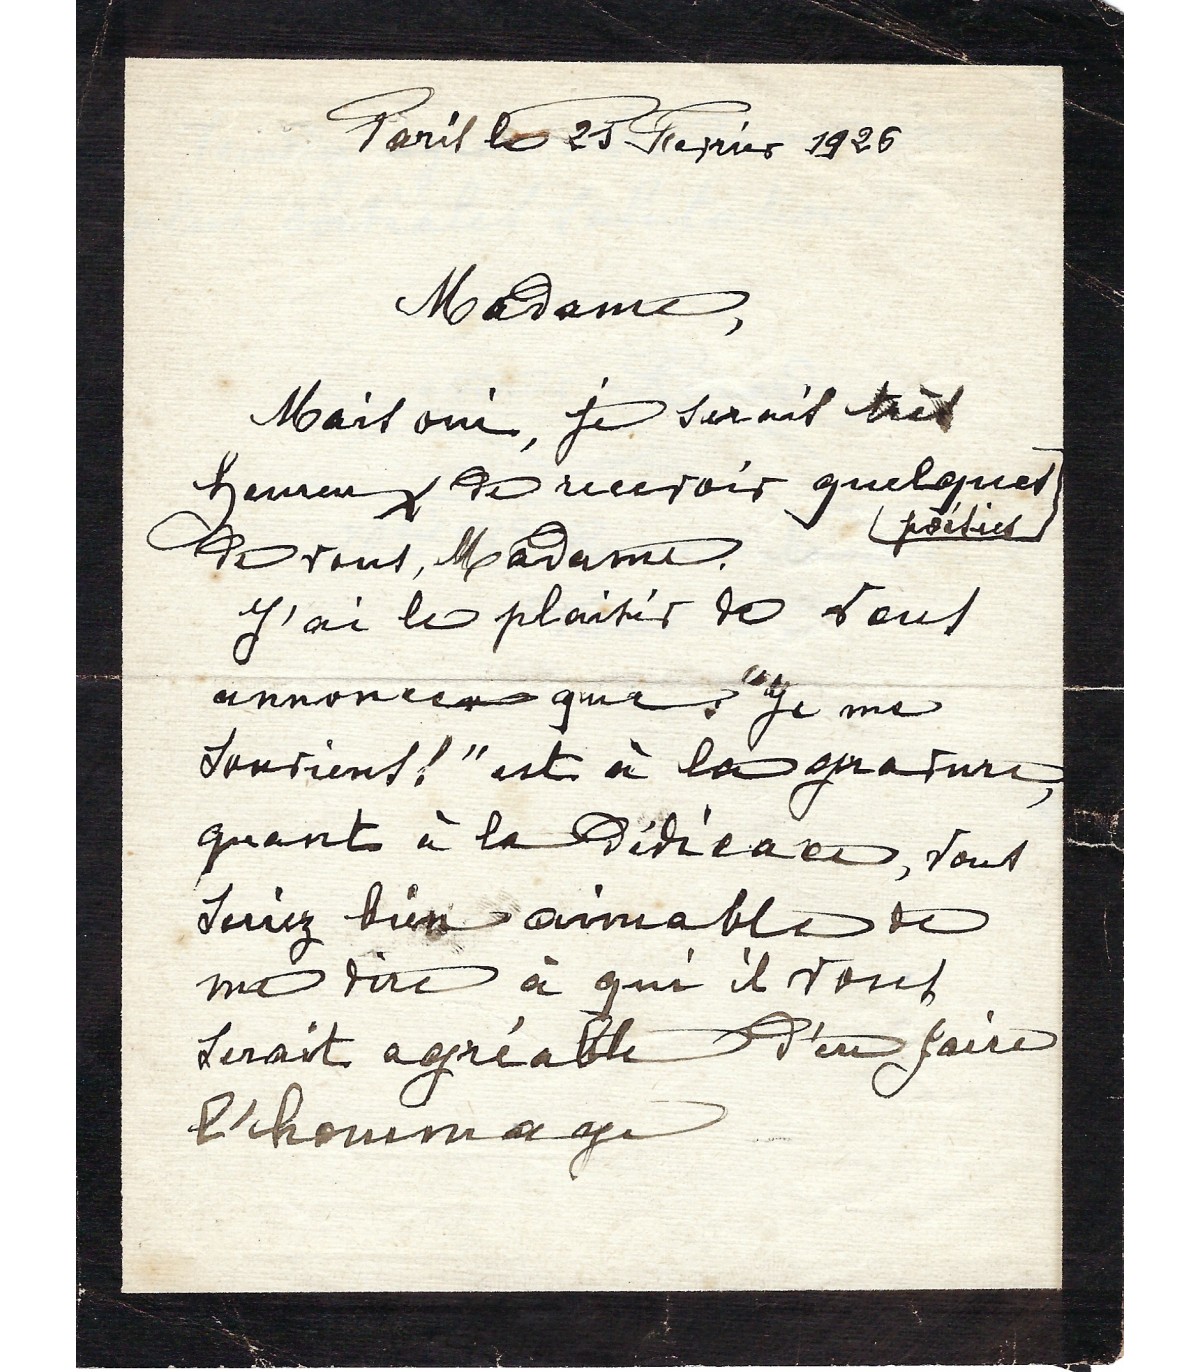 Paris le 25 Fevrier 1926
Madame,
Mais oui, je serais très
heureux de recevoir quelques
poésies
de vous, Madame.
J'ai le plaisir de vous
annoncer que : "Je me
souviens !" est à la gravure,
quant à la dédicace, vous
seriez bien aimable de
me dire à qui il vous
serait agréable d'en faire
l'hommage